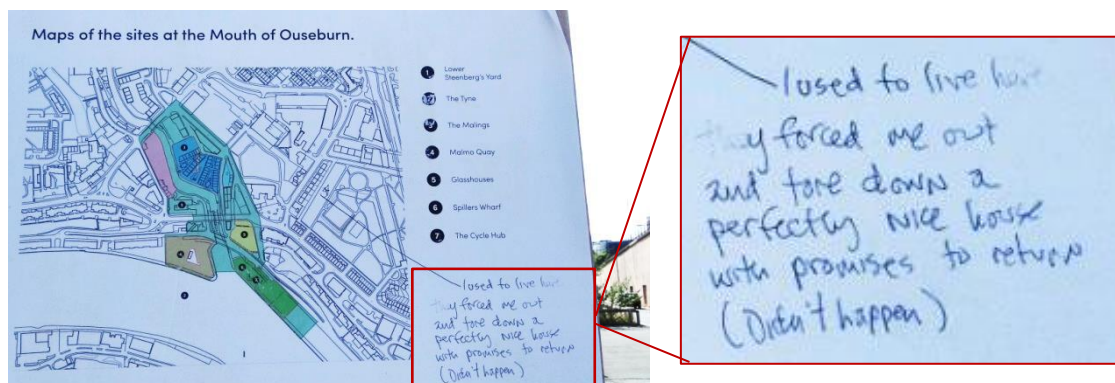 Maps of the sites at the Mouth of Ouseburn.
1 Lower
Steenberg's Yard
2 The Tyne
3 The Malings
4 Malmo Quay
5 Glasshouses
6 Spillers Wharf
7 The Cycle Hub
I used to live here
they forced me out
and tore down a
perfectly nice house
with promises to return
(Didn't happen)
I used to live here
they forced me out
and tore down a
perfectly nice house
with promises to return
(Didn't happen)